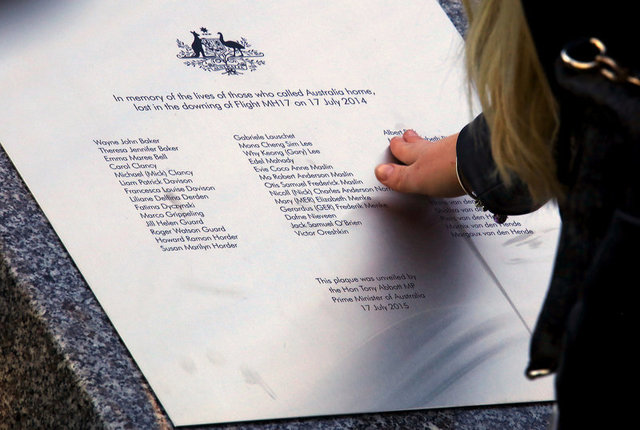 In memory of the lives of those who called Australia home,
lost in the downing of Flight MH17 on 17 July 2014
Wayne John Baker
Theresa Jennifer Baker
Emma Maree Bell
Carol Clancy
Michael (Mick) Clancy
Liam Patrick Davison
Francesca Louise Davison
Liliane Delfina Derden
Fatima Dyczynski
Marco Grippeling
Jill Helen Guard
Roger Watson Guard
Howard Ramon Horder
Susan Marilyn Horder
Gabriele Lauschet
Mona Cheng Sim Lee
Why Keong (Gary) Lee
Edel Mahady
Evie Coco Anne Maslin
Mo Robert Anderson Maslin
Otis Samuel Frederick Maslin
Nicoll (Nick) Charles Anderson Nor
Mary (MER) Elizabeth Menke
Gerardus (GER) Frederik Menke
Dafne Nieveen
Jack Samuel O'Brien
Victor Oreshkin
Albert
van der
van den
van den Hende
Margaux van den Hende
This plaque was unveiled by
the Hon Tony Abbott MP
Prime Minister of Australia
17 July 2015